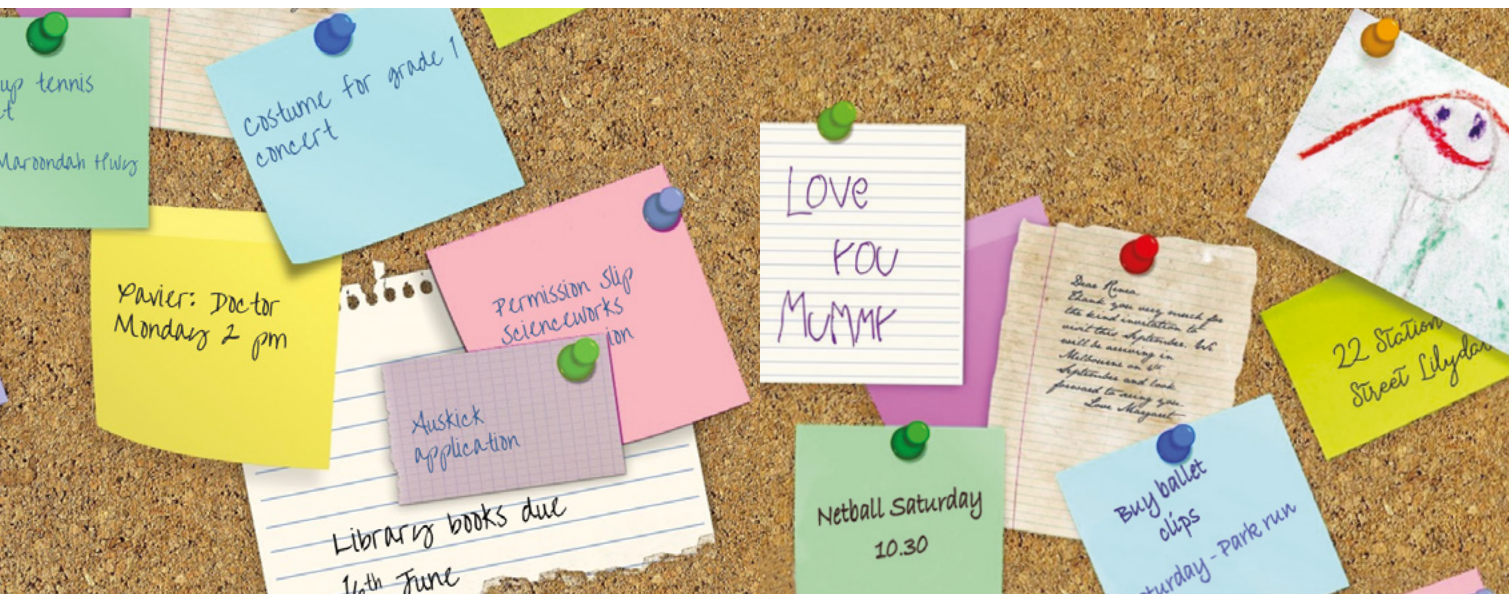 up tennis
Maroondah Hwy
Costume for grade 1
concert
Xavier: Doctor
Monday 2 pm
Permission slip
scienceworks
Auskick
application
Library books due
16th June
LOVE
YOU
MUMMY
Dear
Thank you very much for
the kind invitation to
visit this September. We
will be arriving in
Melbourne on
September and look
forward to seeing you
Love Margaret
22 Station
Street
Netball Saturday
10.30
Buy ballet
clips
Park run